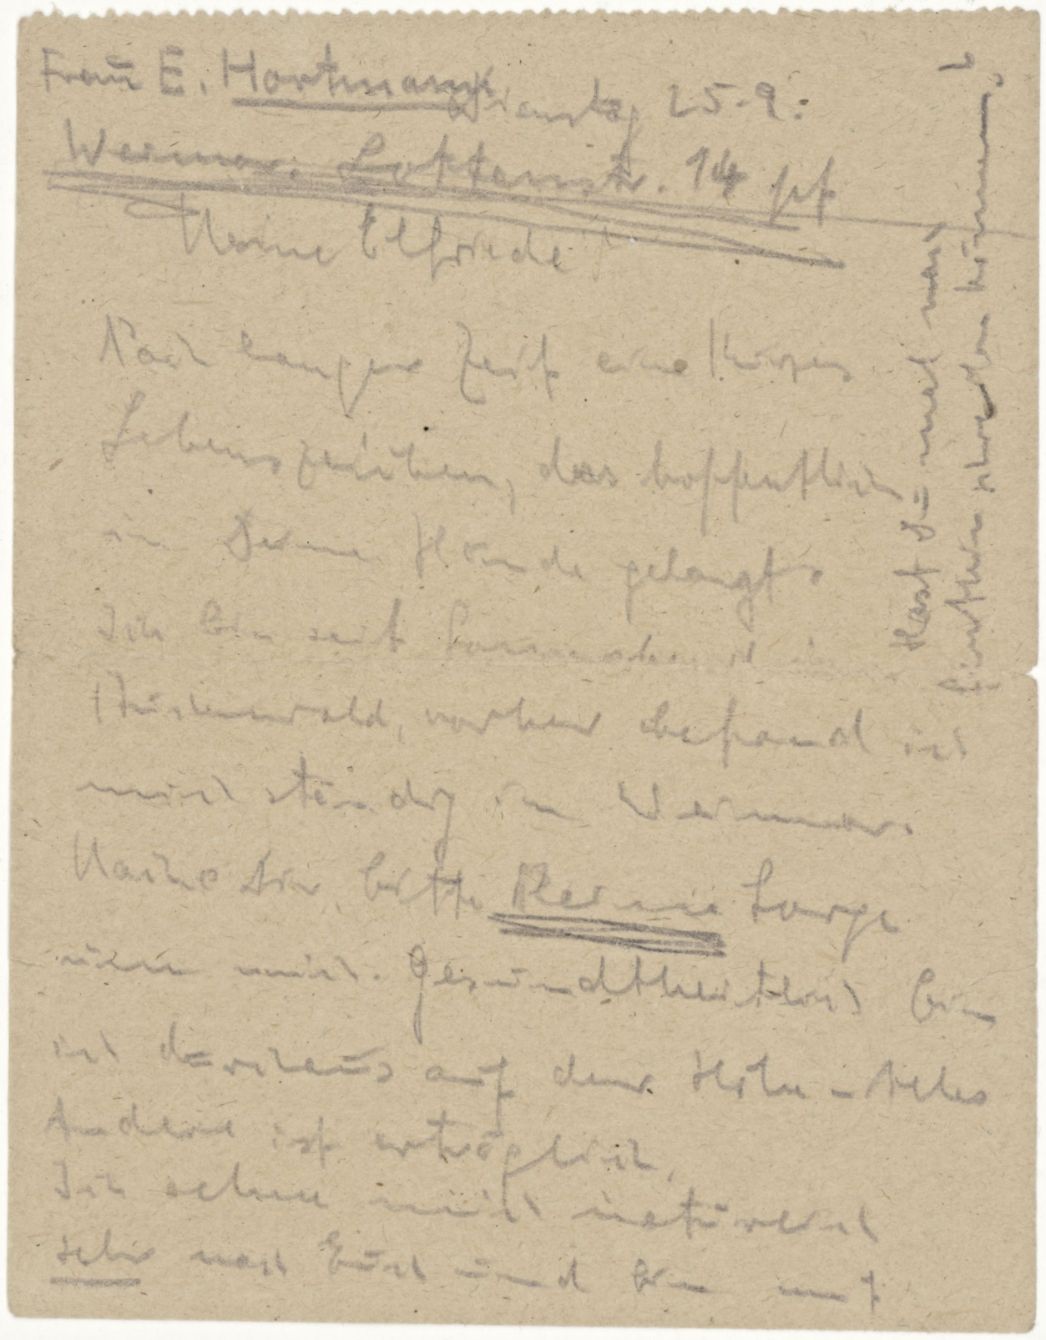 Frau E. Hortmann
Dienstag 25.9.
Weimar. Lottenstr. 14 ptr
Meine Elfriede!
Nach langer Zeit ein kurzes
Lebenszeichen, das hoffentlich
in Deine Hände gelangt.
Ich bin seit Sonnabend in
Buchenwald, vorher befand ich
mich ständig in Weimar.
Mache Dir bitte keine Sorge
um mich. Gesundheitlich bin
ich durchaus auf der Höhe – Alles
Andere ist erträglich.
Ich sehne mich natürlich
sehr nach Euch und bin mit
Hast Du mal nach
schreiben können?